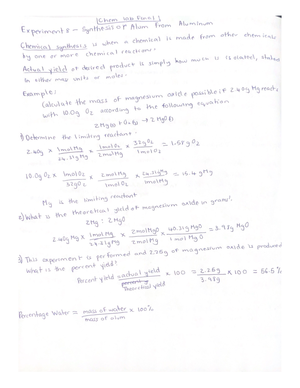 Chem Lab Final
Experiment 8 - Synthesis of Alum From Aluminum
Chemical synthesis is when a chemical is made from other chemicals
by one or more chemical reactions.
Actual yield of desired product is simply how much is
in either mass units or moles.
Example:
Calculate the mass of magnesium oxide possible if 2.40g Mg reacts
with 10.0g O2 according to the following equation
2Mg(s) + O2(g) → 2MgO(s)
1) Determine the limiting reactant:
2.40g x 1mol Mg / 24.31g Mg x 1mol O2 / 2mol Mg x 32g O2 / 1mol O2 =
10.0g O2 x 1mol O2 / 32g O2 x 2mol Mg / 1mol O2 x 24.31g Mg / 1mol Mg =
Mg is the limiting reactant
2) What is the theoretical yield of magnesium oxide in grams?
2Mg : 2MgO
2.40g Mg x 1mol Mg / 24.31g Mg x 2mol MgO / 2mol Mg x 40.31g MgO / 1mol MgO = 3.98g MgO
3) This experiment is performed and of magnesium oxide is produced
What is the percent yield?
Percent yield = actual yield / Theoretical yield x 100 = / 3.98g x 100 =
Percentage Water = mass of water / mass of alum x 100%